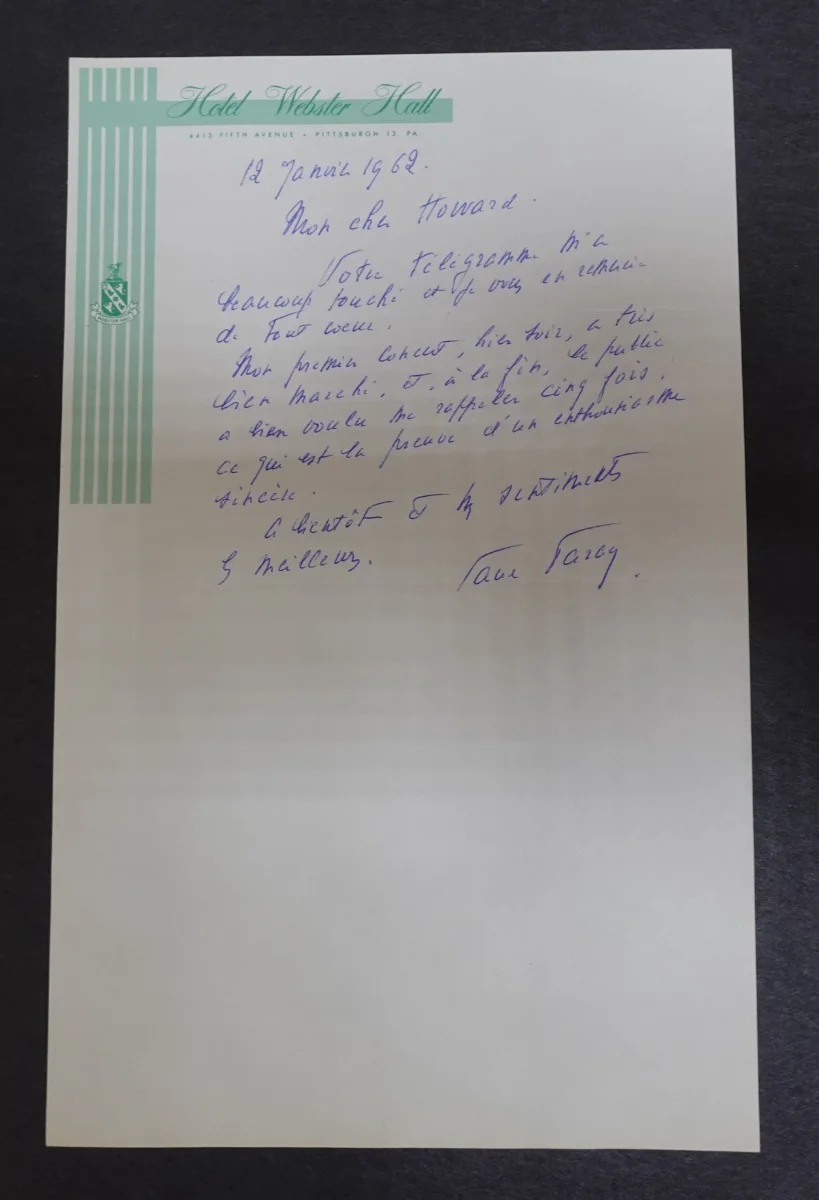 Hotel Webster Hall
4415 FIFTH AVENUE • PITTSBURGH 13, PA.
WEBSTER HALL
12 Janvier 1962.
Mon cher Howard.
Votre télégramme m'a
beaucoup touché et je vous en remercie
de tout coeur.
Mon premier concert, hier soir, a très
bien marché, et, à la fin, le public
a bien voulu me rappeler cinq fois,
ce qui est la preuve d'un enthousiasme
sincère.
A bientôt et mes sentiments
les meilleurs.
Paul Paray.